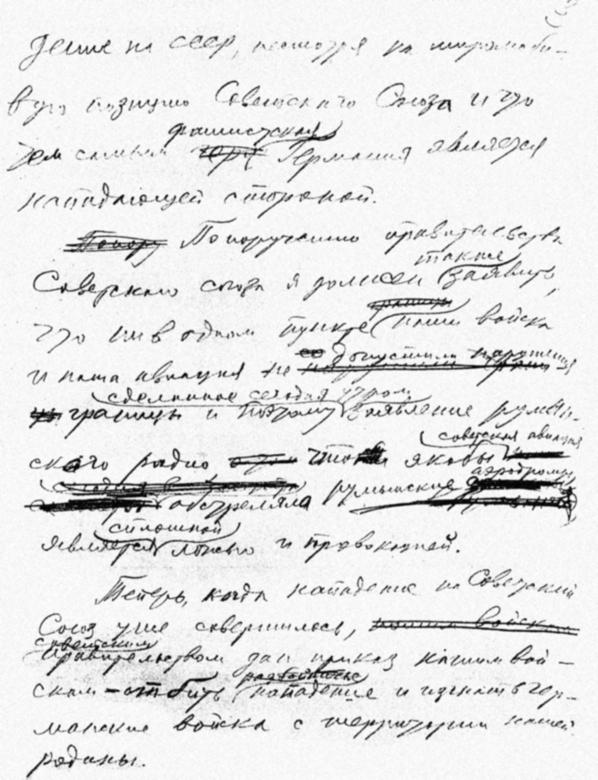 дение на СССР, несмотря на миролюби-
вую позицию Советского Союза и что
фашистская
тем самым Германия является
нападающей стороной.
По поручению правительства
также
Советского союза я должен заявить,
что ни в одном пункте наши войска
и наша авиация не допустили нарушения
сделанное сегодня утром
границы и потому заявление румын-
советская авиация
ского радио что якобы
аэродромы
обстреляла румынские
сплошной
является ложью и провокацией.
Теперь, когда нападение на Советский
Союз уже совершилось,
советским
Правительством дан приказ нашим вой-
разбойничье
скам – отбить нападение и изгнать гер-
манские войска с территории нашей
родины.